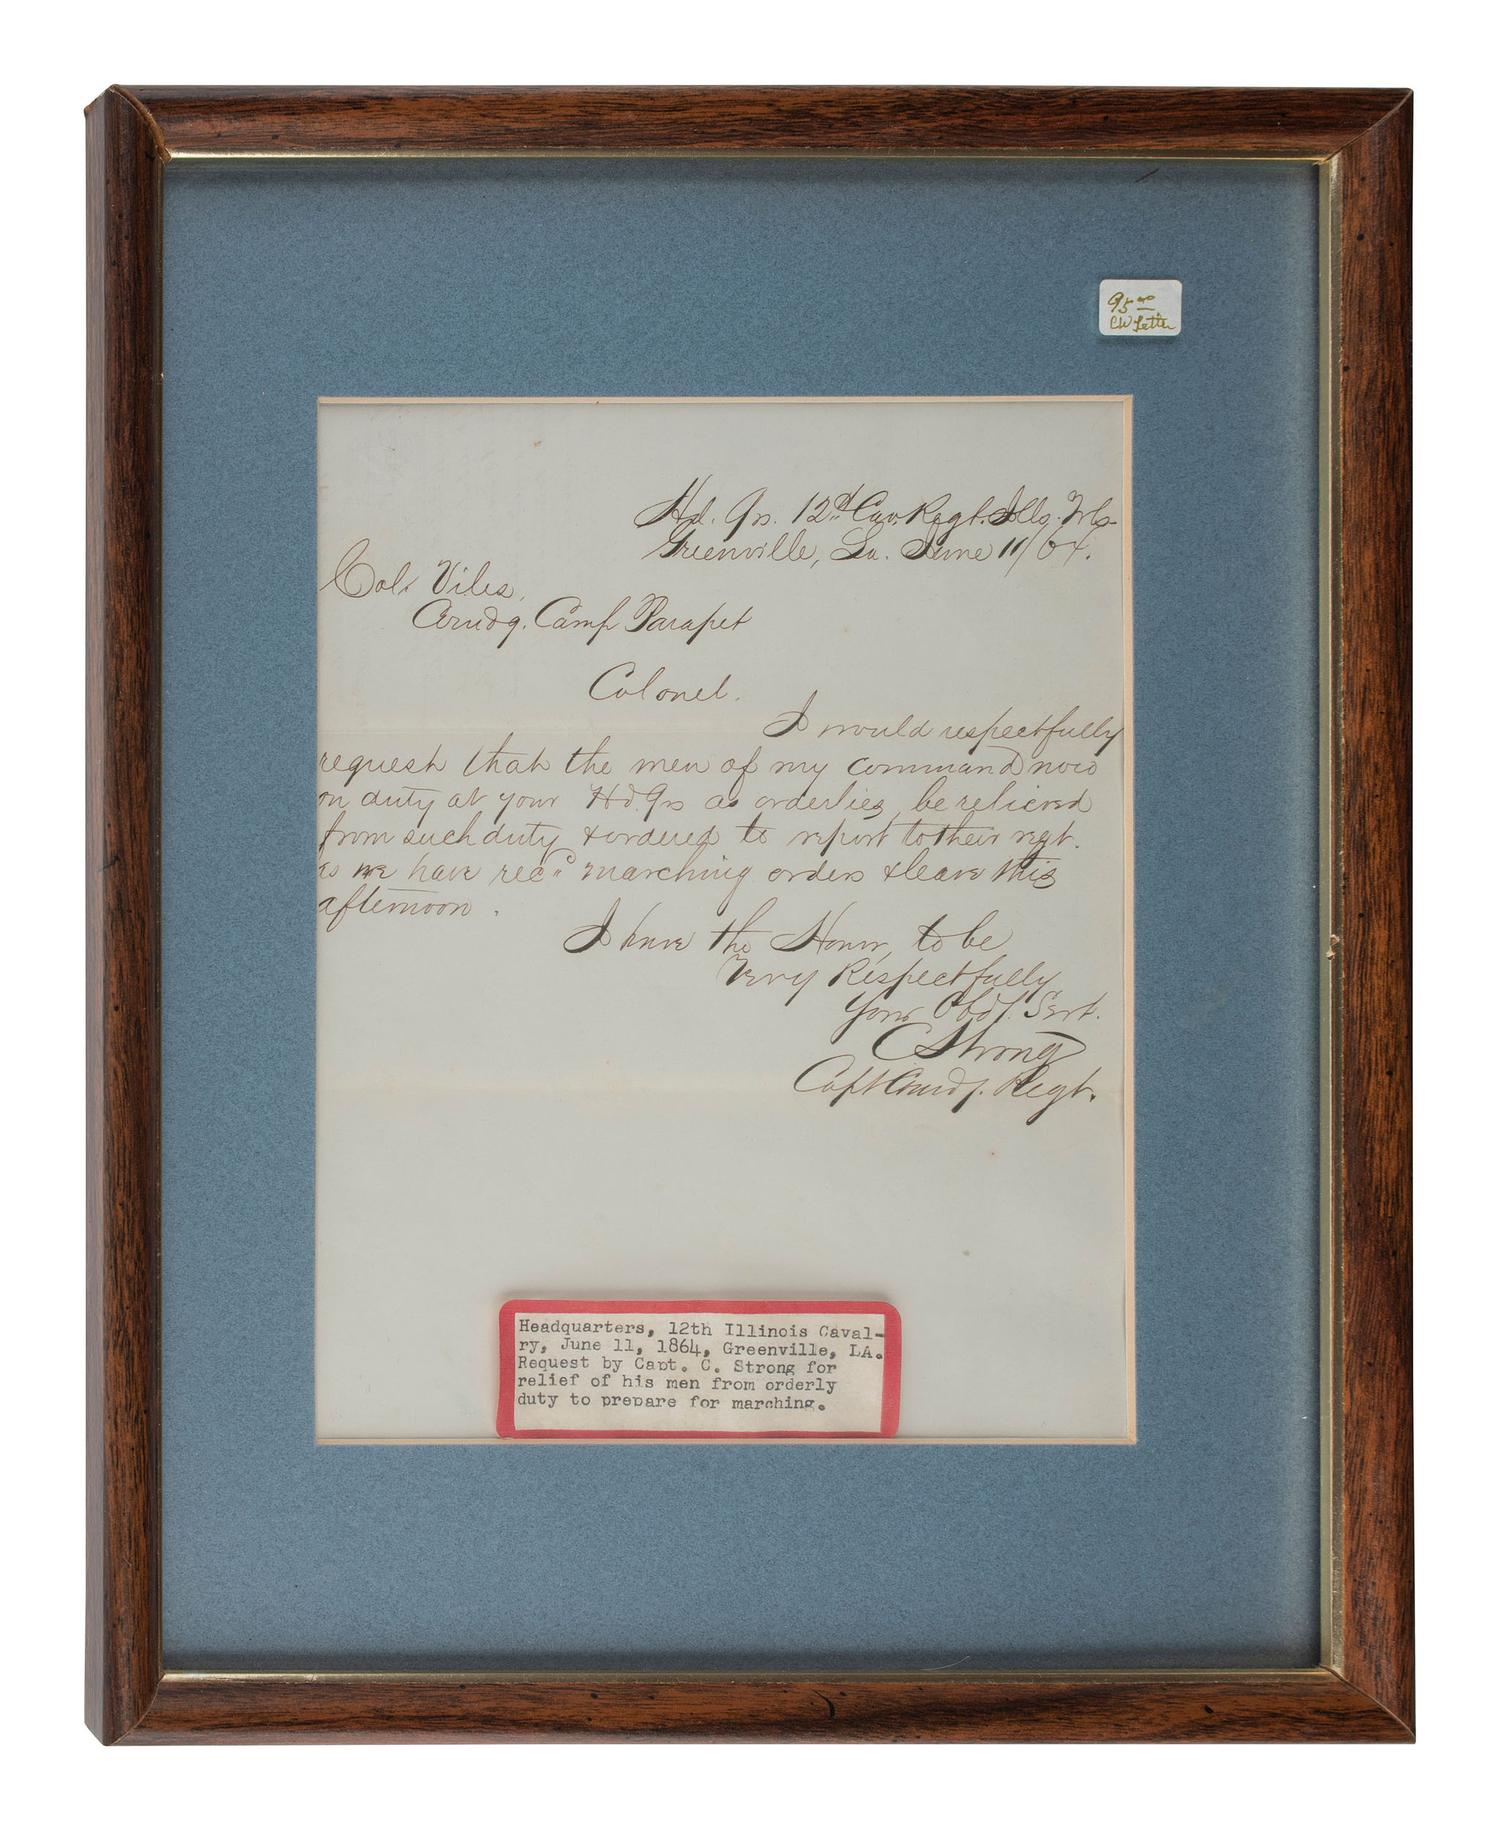 95.00
CW Letter
Hd. Qrs. 12th Cav. Regt. Ills. Vols.
Greenville, La. June 11/64.
Col. Viles,
Comdg. Camp Parapet
Colonel.
I would respectfully
request that the men of my command now
on duty at your Hd. Qrs as orderlies, be relieved
from such duty & ordered to report to their regt.
as we have rec'd marching orders & leave this
afternoon.
I have the Honor, to be
Very Respectfully
Your Obdt. Servt.
C Strong
Capt Comdg. Regt.
Headquarters, 12th Illinois Caval-
ry, June 11, 1864, Greenville, LA.
Request by Capt. C. Strong for
relief of his men from orderly
duty to prepare for marching.